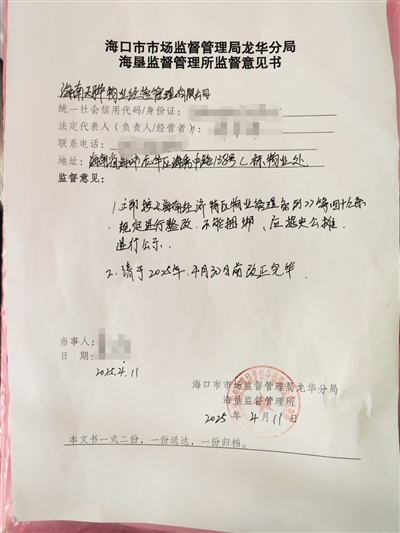 海口市市场监督管理局龙华分局
海垦监督管理所监督意见书
海南天骅物业经营管理有限公司
统一社会信用代码/身份证：
法定代表人（负责人/经营者）：
联系电话：
地址：海南省海口市龙华区海秀中路138号C栋物业处
监督意见：
1.立即按《海南经济特区物业管理条例》第四十七条
规定进行整改，不能捆绑，应据史公摊
进行公示。
2.请于2025年4月30日前改正完毕。
当事人：
日期：
2025.4.11
海口市市场监督管理局龙华分局
海垦监督管理所
2025年4月11日
本文书一式二份，一份送达，一份归档。